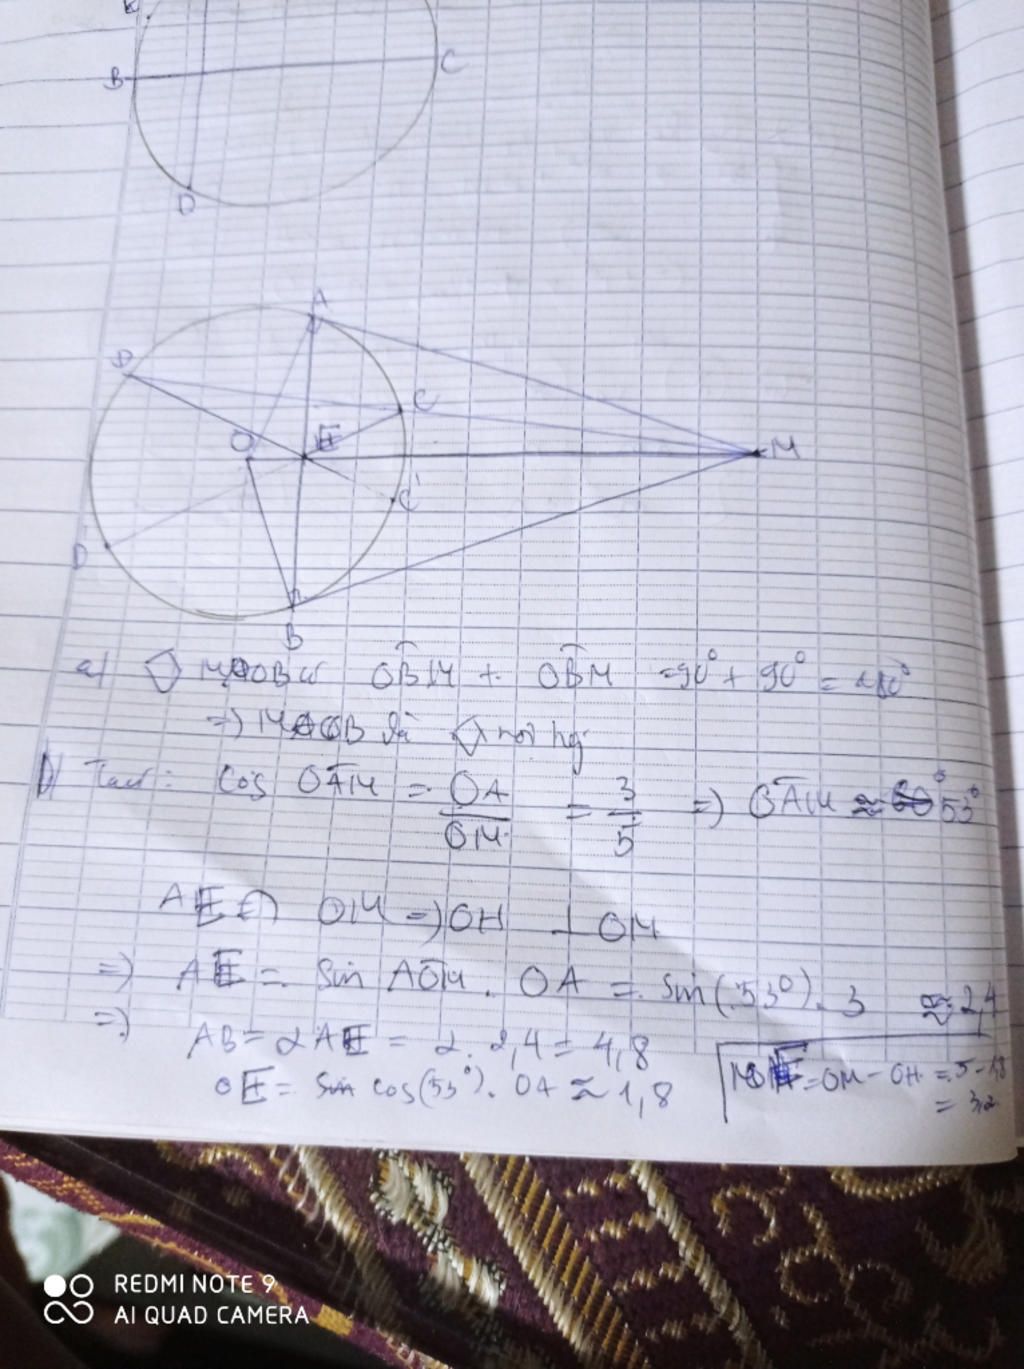 B
C
D
A
D
C
O
E
M
C'
D'
B
a) OBM + OBM = 90° + 90° = 180°
=> là nội
b) cos OAM = OA / OM = 3 / 5 => OAM ≈ 53°
AE ∩ OM => OH ⊥ OM
=> AE = sin AOM . OA = sin(53°) . 3 ≈ 2,4
=> AB = 2 AE = 2 . 2,4 = 4,8
OE = cos(53°) . OA ≈ 1,8
= OM - OH = 5 - 1,8
= 3,2
REDMI NOTE 9
AI QUAD CAMERA